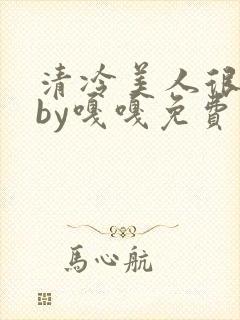 清冷美人很
by嘎嘎免費
馬心航